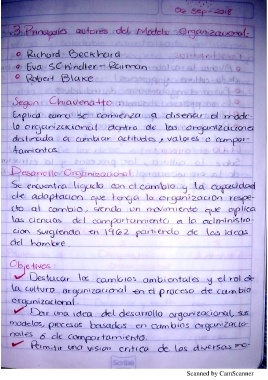 02 Sep-2018
3 Principales autores del Modelo Organizacional:
Richard Beckhard
Eva SCHindler-Raiman
Robert Blake
Según Chiavenatto
Explica como se comienza a diseñar el mode
lo organizacional dentro de las organizaciones
destinada a cambiar actitudes, valores o compor-
tamientos.
Desarrollo Organizacional
Se encuentra ligado con el cambio y la capacidad
de adaptación que tenga la organización respec-
to al cambio, siendo un movimiento que aplica
las ciencias del comportamiento a la administra-
cion surgiendo en 1962 partiendo de las ideas
del hombre.
Objetivos
Destacar los cambios ambientales y el rol de
la cultura organizacional en el proceso de cambio
organizacional.
Dar una idea del desarrollo organizacional, sus
modelos, procesos basados en cambios organizacio-
nales o de comportamiento.
Permitir una visión critica de los diversos mo-
Scanned by CamScanner